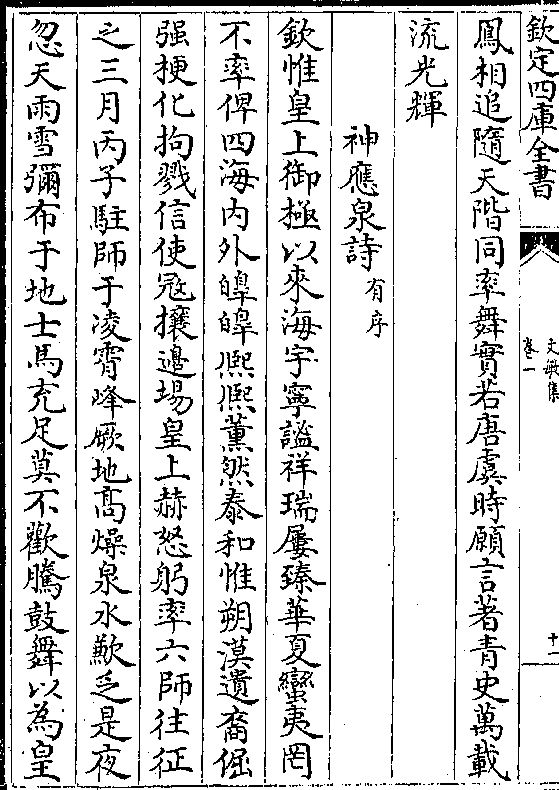 欽定四庫全書
文敏集
卷一
十一
鳳相追隨天階同率舞實若唐虞時願言著青史萬載
流光輝
神應泉詩有序
欽惟皇上御極以來海宇寧謐祥瑞屢臻華夏蠻夷罔
不率俾四海内外皥皥熈熈薫然泰和惟朔漠遺裔倔
强梗化拘戮信使宼攘邊場皇上赫怒躬率六師往征
之三月丙子駐師于凌霄峰厥地髙燥泉水歉乏是夜
忽天雨雪彌布于地士馬充足莫不歡騰鼓舞以為皇